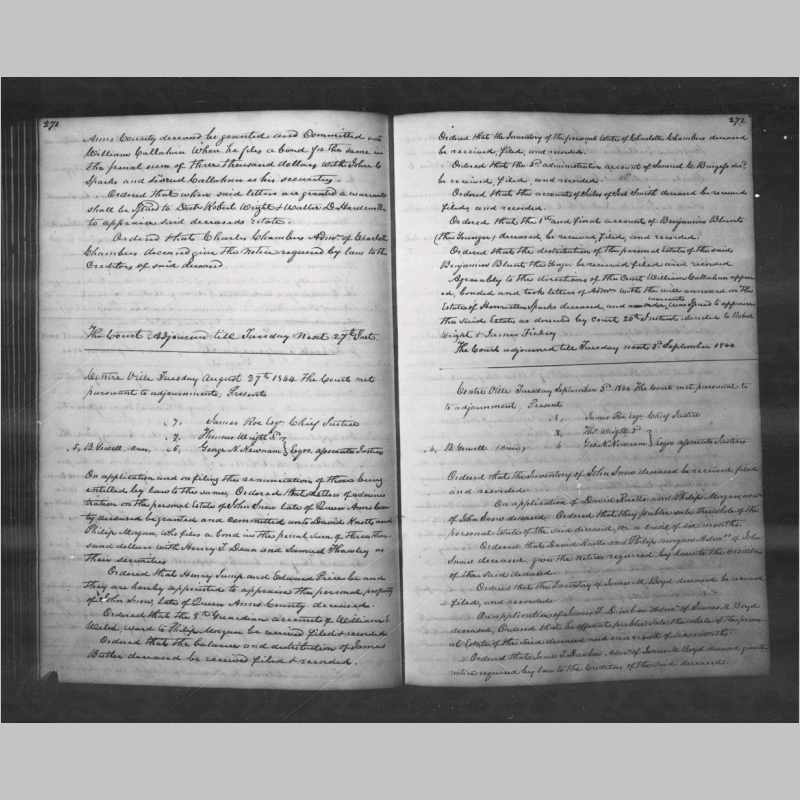 272
Anns County deceased be granted and Committed unto
William Callahan when he files a bond for the same in
the penal sum of three thousand dollars with John C
Sparks and Callahan as his securities.
Ordered that when said letters are granted a warrant
shall be Issued to Robert Wright & Walter D. Hardcastle
to appraise said deceaseds estate.
Ordered that Charles Chambers Admr. of Charlotte
Chambers deceased give the Notice required by law to the
Creditors of said deceased.
The Court Adjourned till Tuesday Next 27th Inst.
Centre Ville Tuesday August 27th 1844 The Court met
pursuant to adjournment, Present
7, James Roe Esqr Chief Justice
7, Thomas Wright 3d
5, B. Sewell, 6, George N. Newnam Esqrs associate Justices
On application and on filing the renunciation of those being
entitled by law to the same, Ordered that letters of adminis
tration on the personal Estate of John Snow late of Queen Anns Coun
ty deceased be granted and committed unto David Ruetts and
Philip Morgan, who files a bond in the penal sum of three thou
sand dollars with Henry T. Dean and Samuel Thawley as
their securities
Ordered that Henry Jump and Edward Price be and
they are hereby appointed to appraise the personal property
of John Snow, late of Queen Anns County deceased.
Ordered that the 8th Guardian account of William S
Welch ward to Philip Morgan be received filed & recorded
Ordered that the balance and distribution of James
Butler deceased be received filed & recorded.
272
Ordered that the Inventory of the personal Estate of Charlotte Chambers deceased
be received, filed, and recorded.
Ordered that the administration account of Samuel Burgess decd.
be received, filed, and recorded
Ordered that the account of Sales of Smith deceased be received
filed, and recorded
Ordered that the 1st and final account of Benjamin Blunt
(the Younger) deceased, be received, filed, and recorded.
Ordered that the distribution of the personal estate of the said
Benjamin Blunt the Younger be received filed and recorded
Agreeably to the directions of the Court William Callahan appear
ed, bonded and took letters of Admn with the will annexed on the
Estate of Sparks deceased, and warrant was Issued to appraise
the said Estate as directed by court 20th Instant, directed to Robert
Wright & James
The Court adjourned till Tuesday next 3d September 1844
Centre Ville Tuesday September 3d 1844 The Court met pursuant to
to adjournment, Present
8, James Roe Esqr Chief Justice
8, Tho. Wright 3d
6, B. Sewell 6 Geo. N. Newnam Esqrs associate Justices
Ordered that the Inventory of John Snow deceased be received filed
and recorded
On application of David Ruetts and Philip Morgan
of John Snow deceased. Ordered that they public sale thereof of the
personal estate of the said deceased, on a credit of six months.
Ordered that David Ruetts and Philip Morgan Admrs of John
Snow deceased, give the notice required by law to the creditors
of the said deceased.
Ordered that the Inventory of James M. Boyd deceased be received
filed, and recorded
On application of James T. Admr. of James M Boyd
deceased, Ordered that he public sale the whole of the person
al Estate of the said deceased
Ordered that James T. Admr of James M Boyd deceased give the
notice required by law to the Creditors of the said deceased.